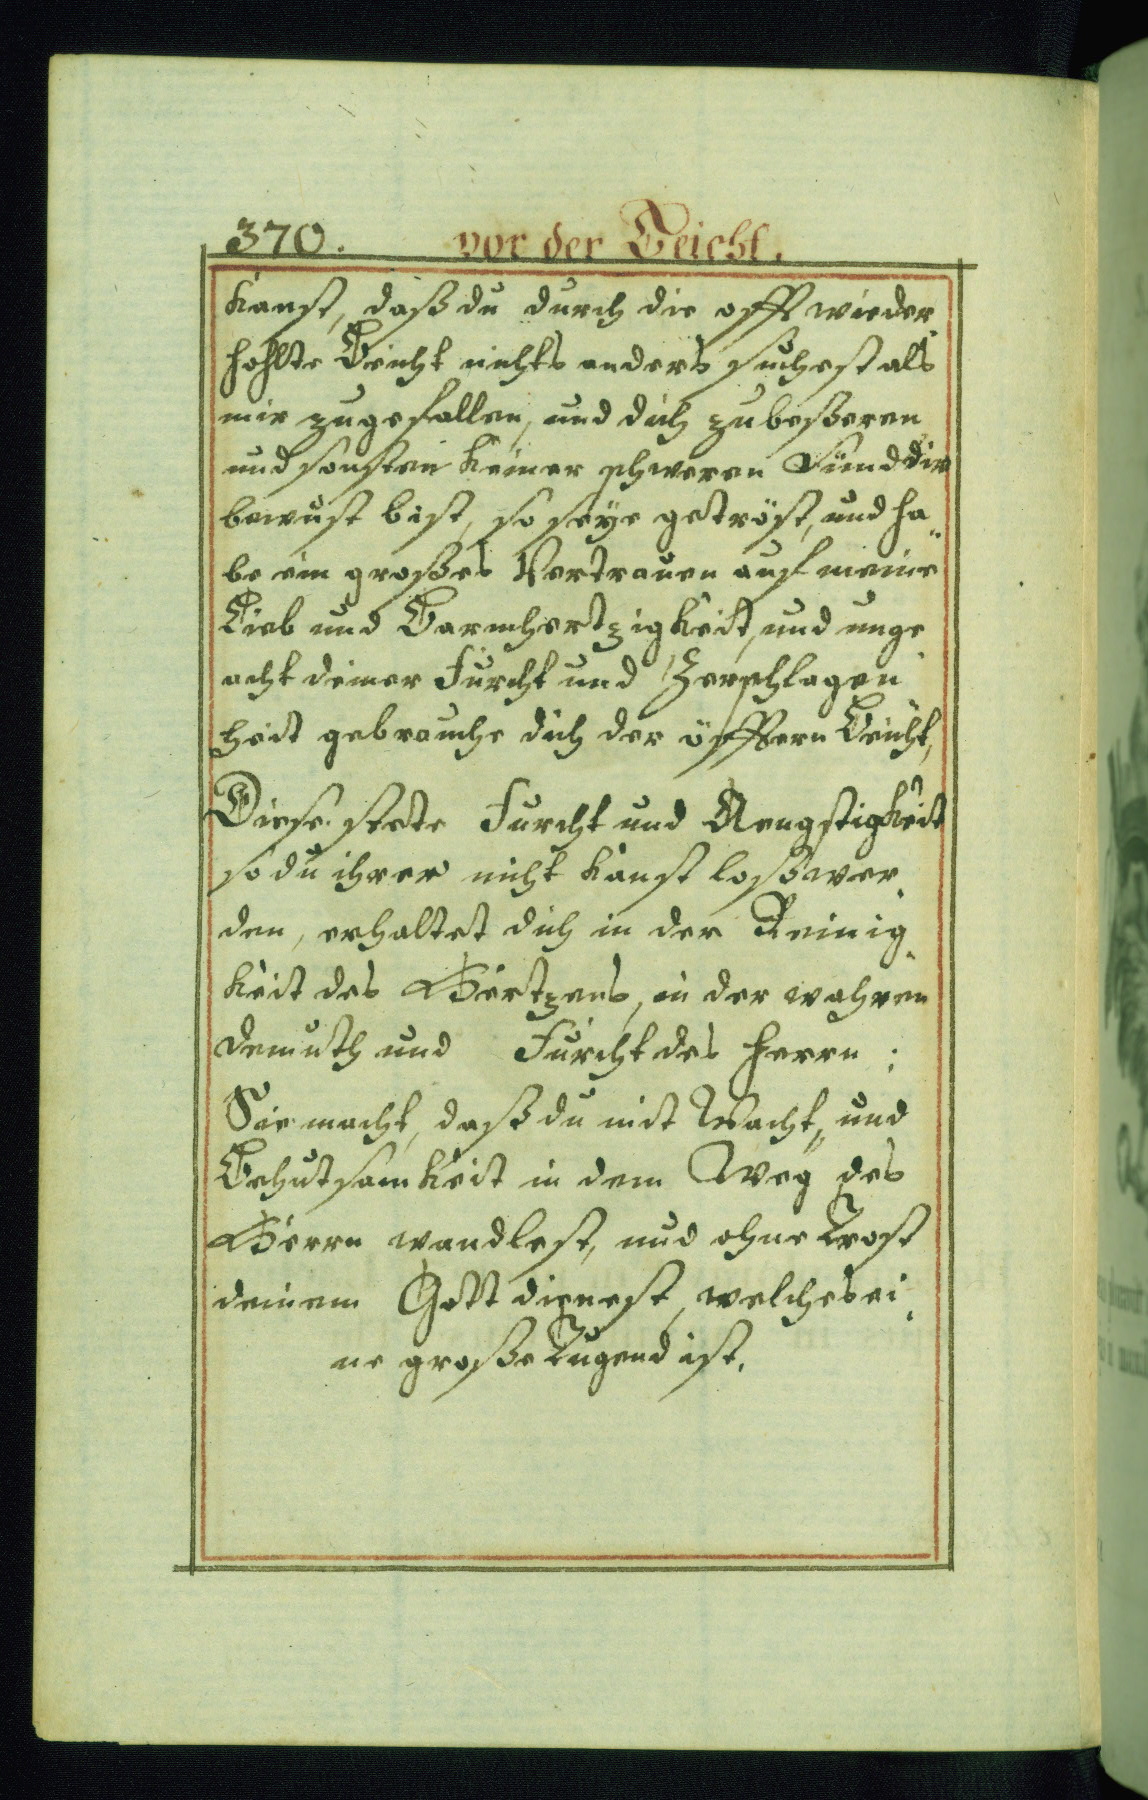 370. vor der Beicht.
kanst, daß du durch die offt wieder„
hohlte Beicht nichts anders suchest als
mir zugefallen, und dich zubeßeren
und sonsten keiner schweren Sünd dir
bewust bist, so seÿe getröst, und ha„
be ein großes Vertrauen auf meine
Lieb und Barmhertzigkeit, und unge
acht deiner Furcht und Zerschlagen
heit gebrauche dich der öfftern Beicht,
Diese stete Furcht und Aengstigkeit
so du ihrer nicht kanst loßwer„
den, erhaltet dich in der Reinig„
keit des Hertzens, in der wahren
demuth und Furcht des Herrn;
Sie macht, daß du mit Wacht„ und
Behutsamkeit in dem Weg des
Herrn wandlest, und ohne Trost
deinem Gott dienest, welches ei„
ne große Tugend ist.